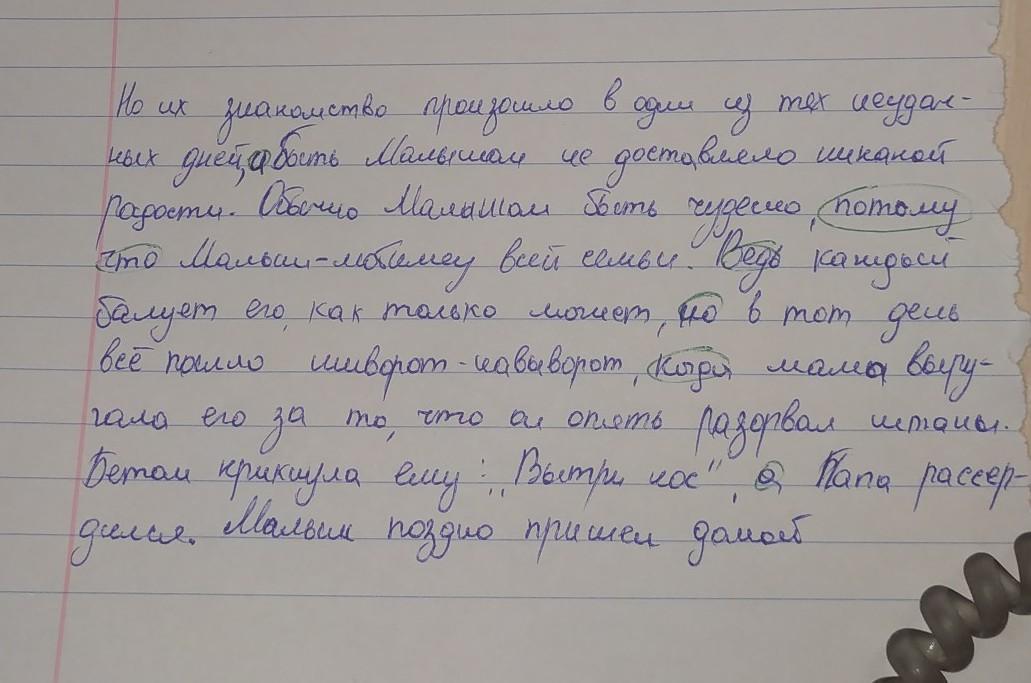 Но их знакомство произошло в один из тех неудач-
ных дней, а быть Малышом не доставляло никакой
радости. Обычно Малышом быть чудесно, потому
что Малыш-любимец всей семьи. Ведь каждый
балует его, как только может, но в тот день
всё пошло шиворот-навыворот, когда мама выру-
гала его за то, что он опять разорвал штаны.
Бетан крикнула ему: "Вытри нос", а Папа рассер-
дился. Малыш поздно пришел домой